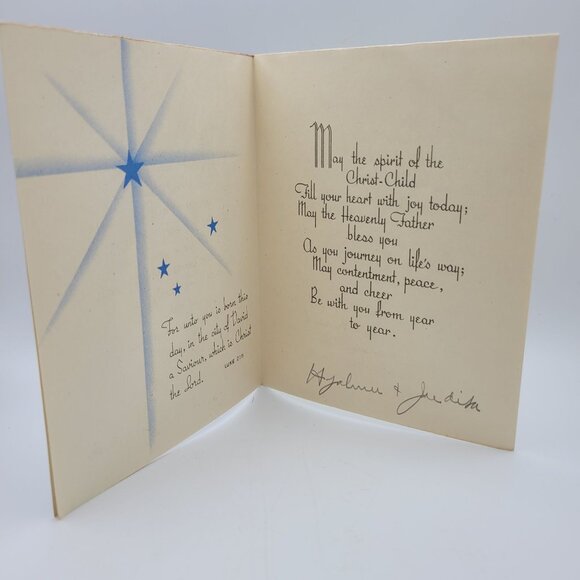 For unto you is born this
day, in the city of David
a Saviour, which is Christ
the Lord.
LUKE 2:11
May the spirit of the
Christ-Child
Fill your heart with joy today;
May the Heavenly Father
bless you
As you journey on life's way;
May contentment, peace,
and cheer
Be with you from year
to year.
Hjalmer &